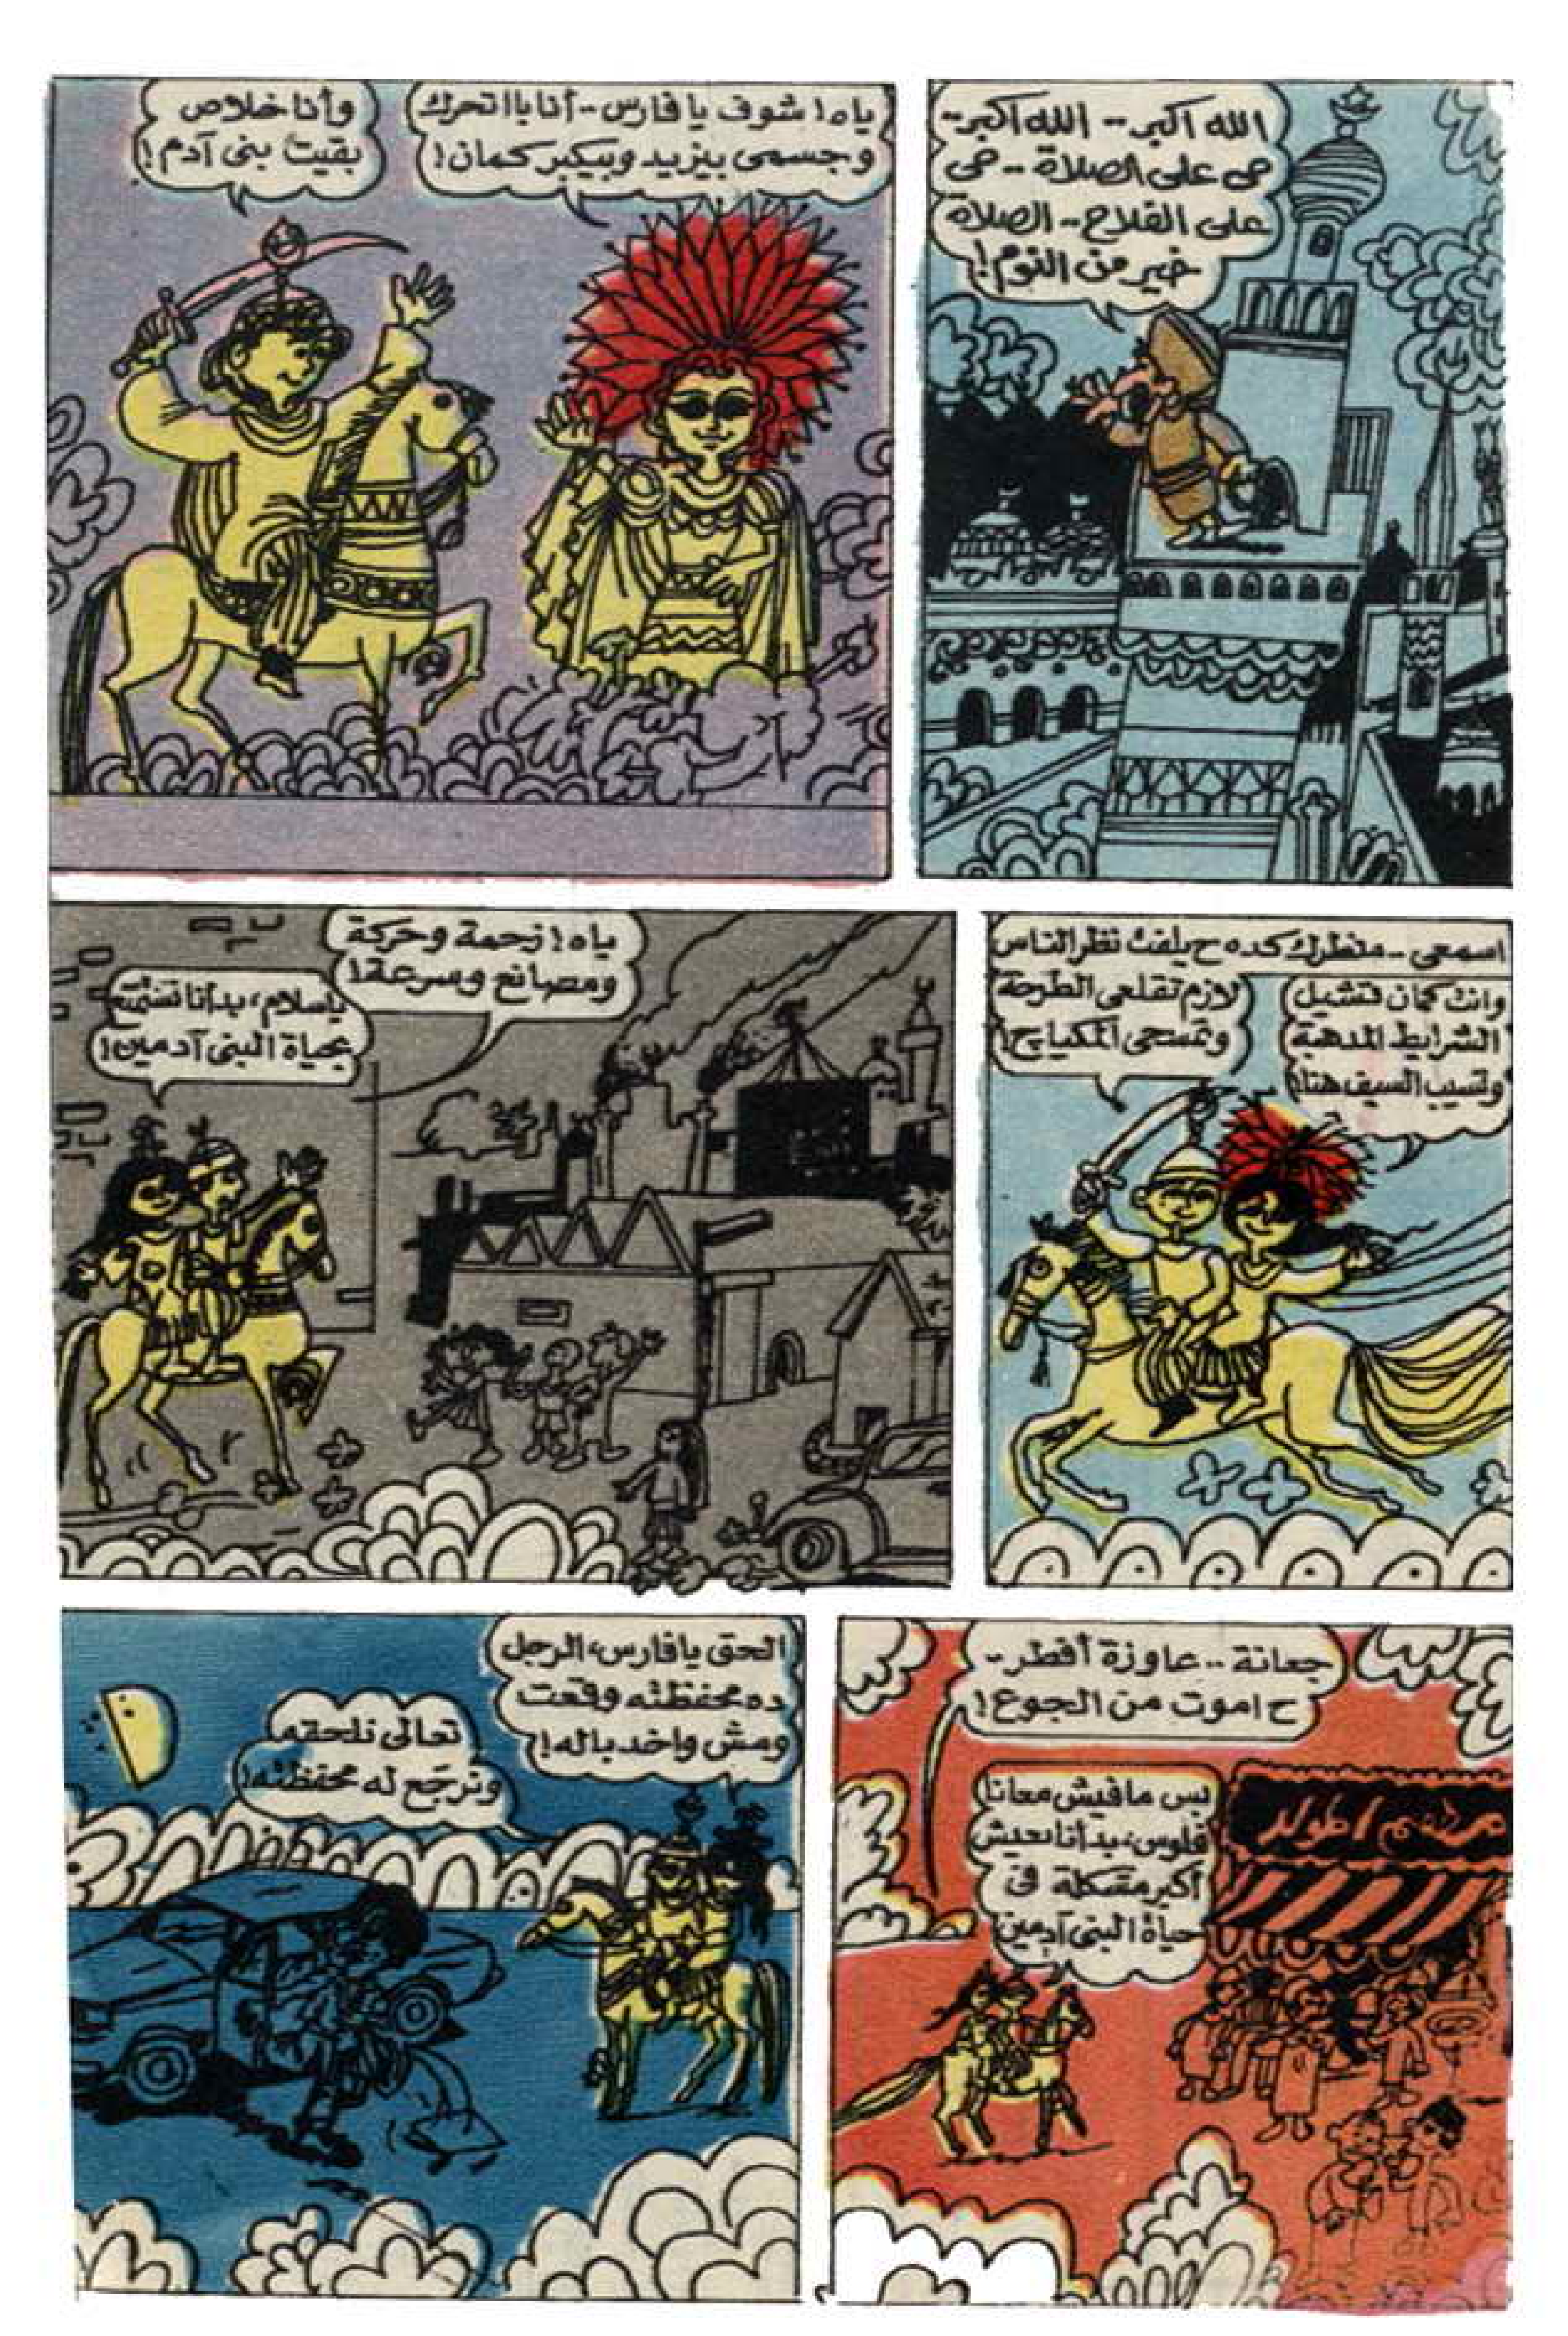 الله اكبر-- الله اكبر--
حى على الصلاة--حى
على الفلاح-- الصلاة
خير من النوم!
ياه! شوف يا فارس-أنا بااتحرك
وجسمى بيزيد وبيكبر كمان!
وأنا خلاص
بقيت بنى آدم!
اسمعى-منظرك كده ح يلفت نظر الناس
لازم تقلعى الطرحة
وتمسحى المكياج!
وانت كمان تشيل
الشرايط المدهبة
وتسيب السيف هنا!
ياه! زحمة وحركة
ومصانع وسرعة!
ياسلام، بدأنا نستمتع
بحياة البنى آدمين!
جعانة-- عاوزة أفطر-
ح اموت من الجوع!
بس مافيش معانا
فلوس، بدأنا نعيش
أكبر مشكلة فى
حياة البنى آدمين
مطعم المولد
الحق يا فارس، الرجل
ده محفظته وقعت
ومش واخد باله!
تعالى نلحقه
ونرجّع له محفظته!